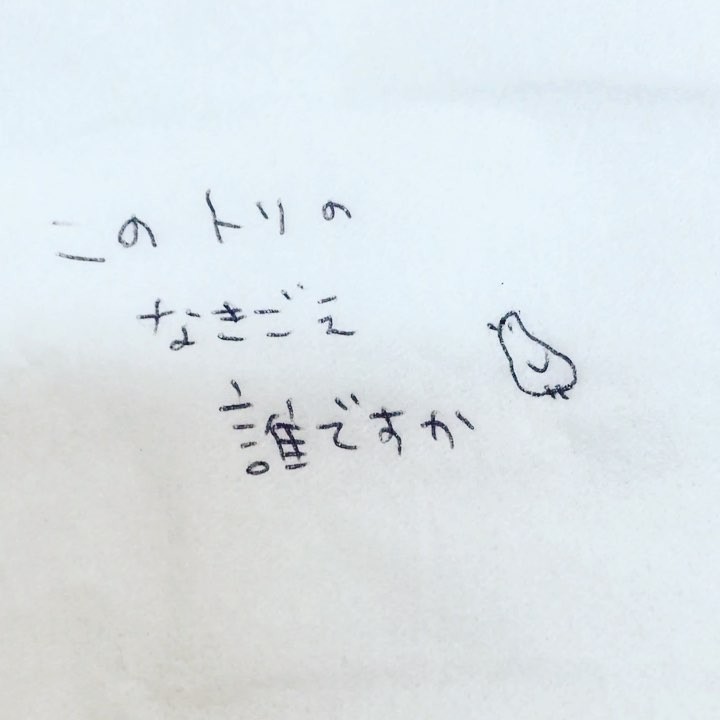 このトリの
なきごえ
誰ですか